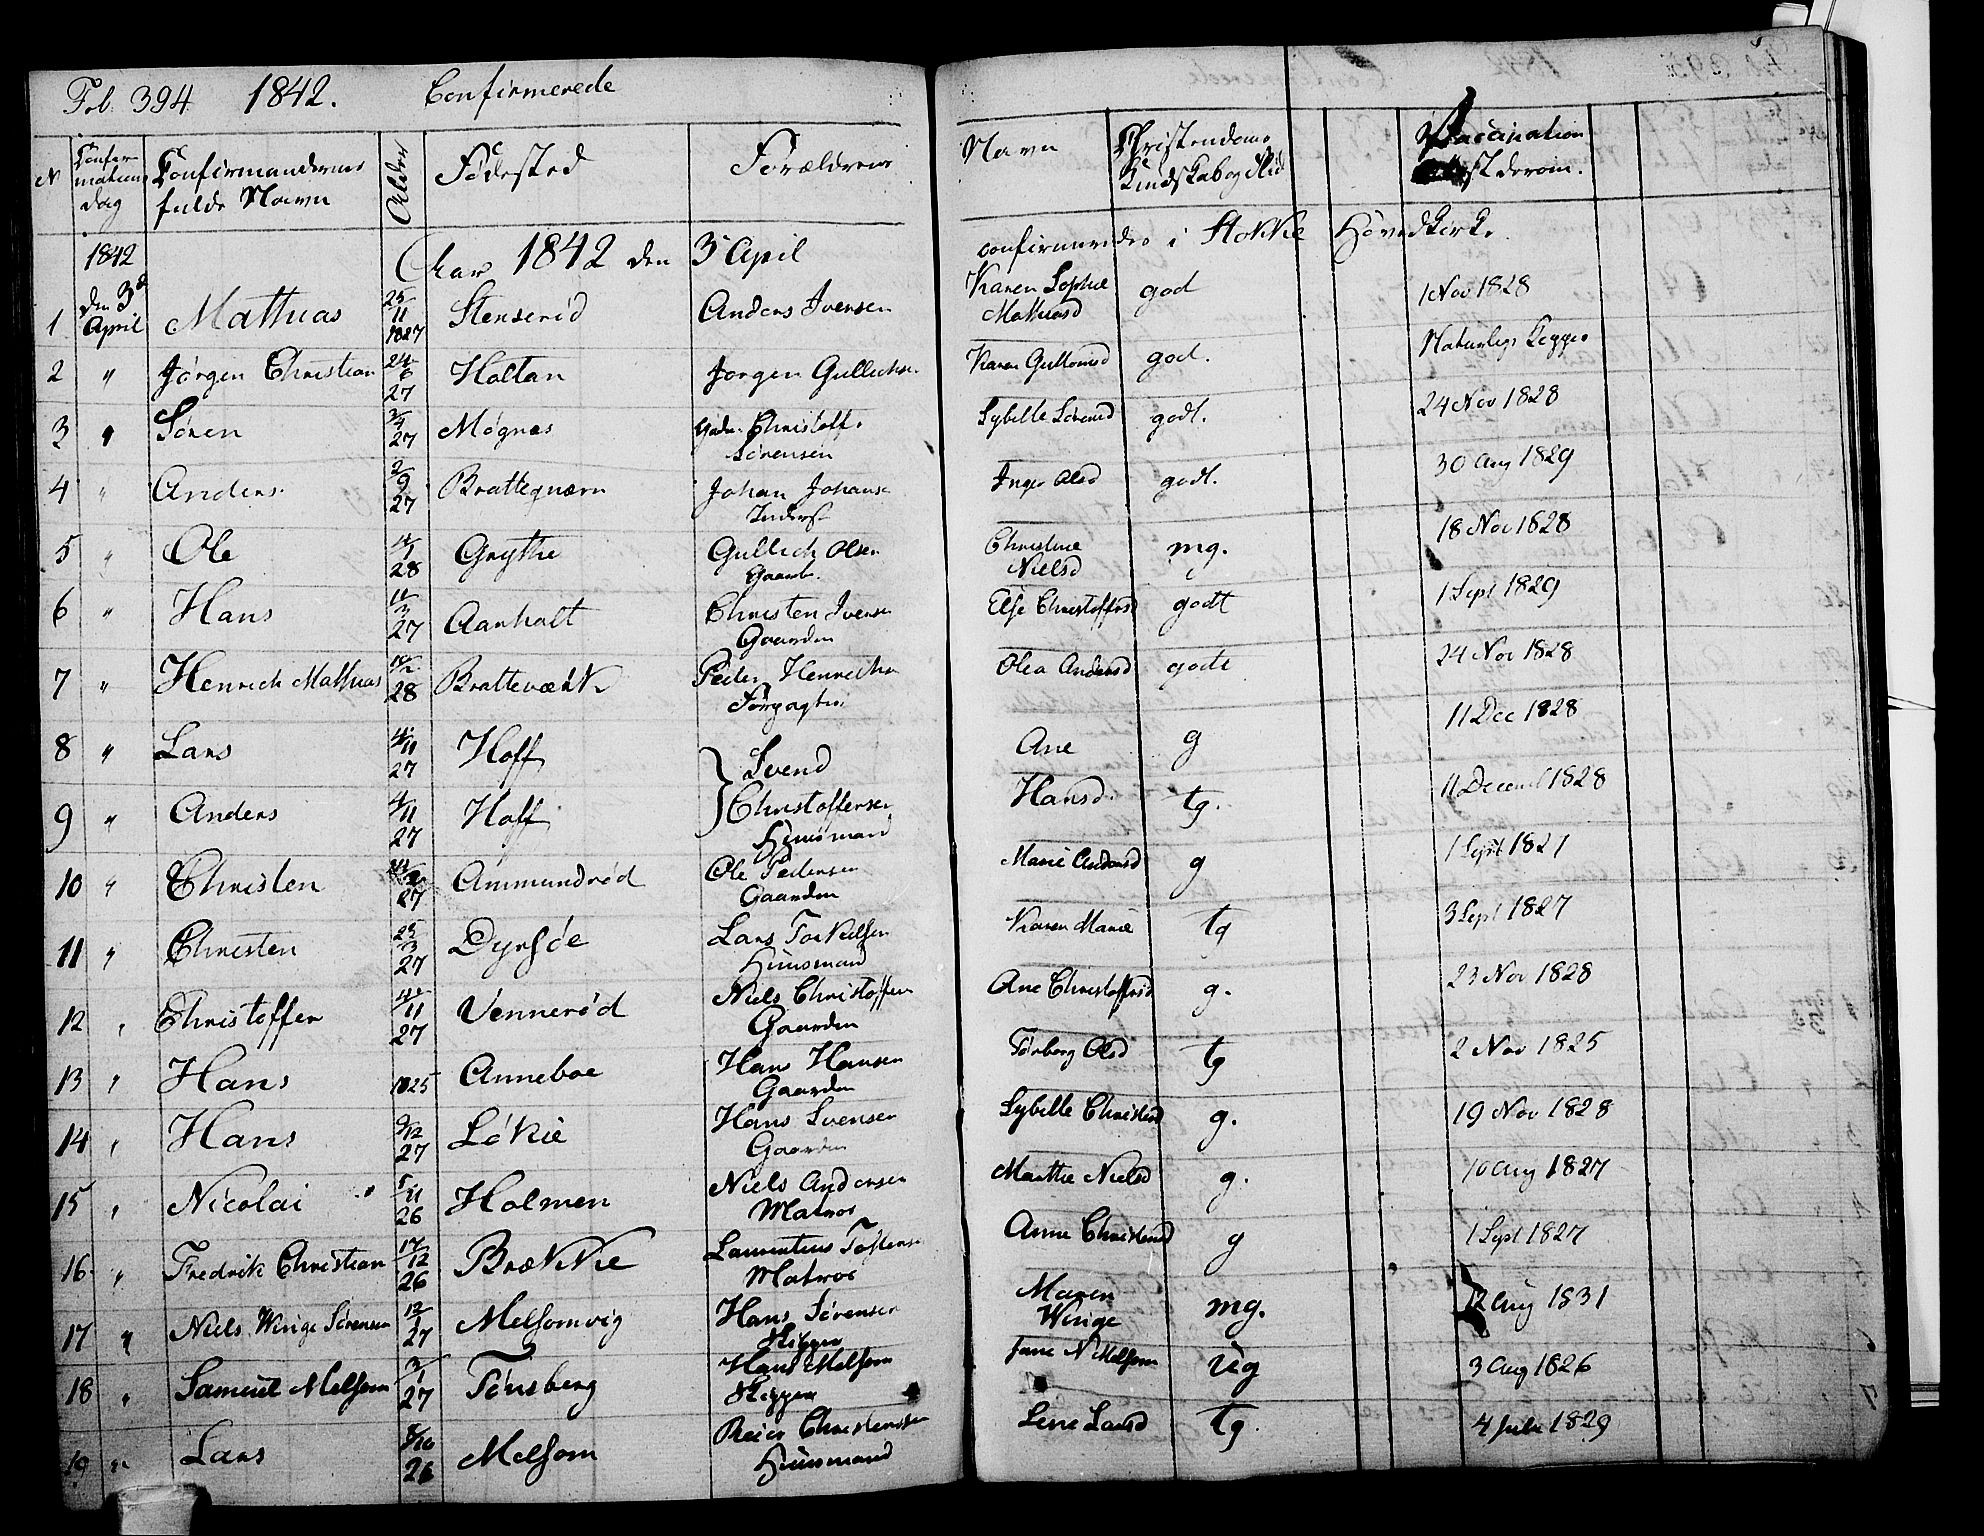 Fol. 394 1842. Confirmerede
N Confirmations dag Confirmandernes fulde Navn Alder Fødested Forældrene Navn Christendoms Kundskab og Flid Vaccination
1842 Aar 1842 den 3 April confirmerede i Stokke Hovedkirke
1 den 3d April Mathias 25/11 1827 Stenserød Anders Iversen Karen Sophie Mathiasd god 1 Nov 1828
2 " Jørgen Christian 24/6 27 Holtan Jørgen Gullichs Karen Guttormsd god. Naturlige Kopper
3 " Søren 3/4 27 Møgnas Christoff. Sørensen Sybille Sørensd godt. 24 Nov 1828
4 " Anders 2/9 27 Brattequærn Johan Johans Inderst Inger Olsd godt. 30 Aug 1829
5 " Ole 14/1 28 Grythe Gullich Olsen Gaardb. Christine Nielsd mg. 18 Nov 1828
6 " Hans 11/3 27 Aanholt Christen Iversen Gaardm Else Christoffersd godt 1 Sept 1829
7 " Henrich Mathias 28 Brattevækk Peder Henrichs Forpagter Olea Andersd godt 24 Nov 1828
8 " Lars 4/11 27 Hoff Svend Ane g 11 Dec 1828
9 " Anders 4/11 27 Hoff Christoffersen Huusmand Hansd. tg. 11 Decemb 1828
10 " Christen 27 Ammundrød Ole Pedersen Gaardm Marie Andersd g 1 Sept 1827
11 " Christen 25/3 27 Dyrsøe Lars Torkelsen Huusmand Karen Marie tg 3 Sept 1827
12 " Christoffer 11 27 Vennerød Niels Christoffer Gaardm Ane Christoffersd g. 23 Nov 1828
13 " Hans 1825 Anneboe Hans Hansen Gaardm Torborg Olsd tg 2 Nov 1825
14 " Hans 9/12 27 Løkie Hans Svensen Gaardm Sybille Christensd g. 19 Nov 1828
15 " Nicolai 5/11 26 Holmen Niels Andersen Matros Marthe Nielsd g. 10 Aug 1827
16 " Fredrik Christian 17/12 26 Brækkie Laurentius Toftens Matros Anne Christensd g 1 Sept 1827
17 " Niels Winge Sørensen 12/1 27 Melsomvig Hans Sørensen Skipper Maren Winge mg. 12 Aug 1831
18 " Samuel Melsom 3/1 27 Tønsberg Hans Melsom Skipper Jane N Melsom ug 3 Aug 1826
19 " Lars 8/10 26 Melsom Reier Christensen Huusmand Lene Larsd tg. 4 Julii 1829